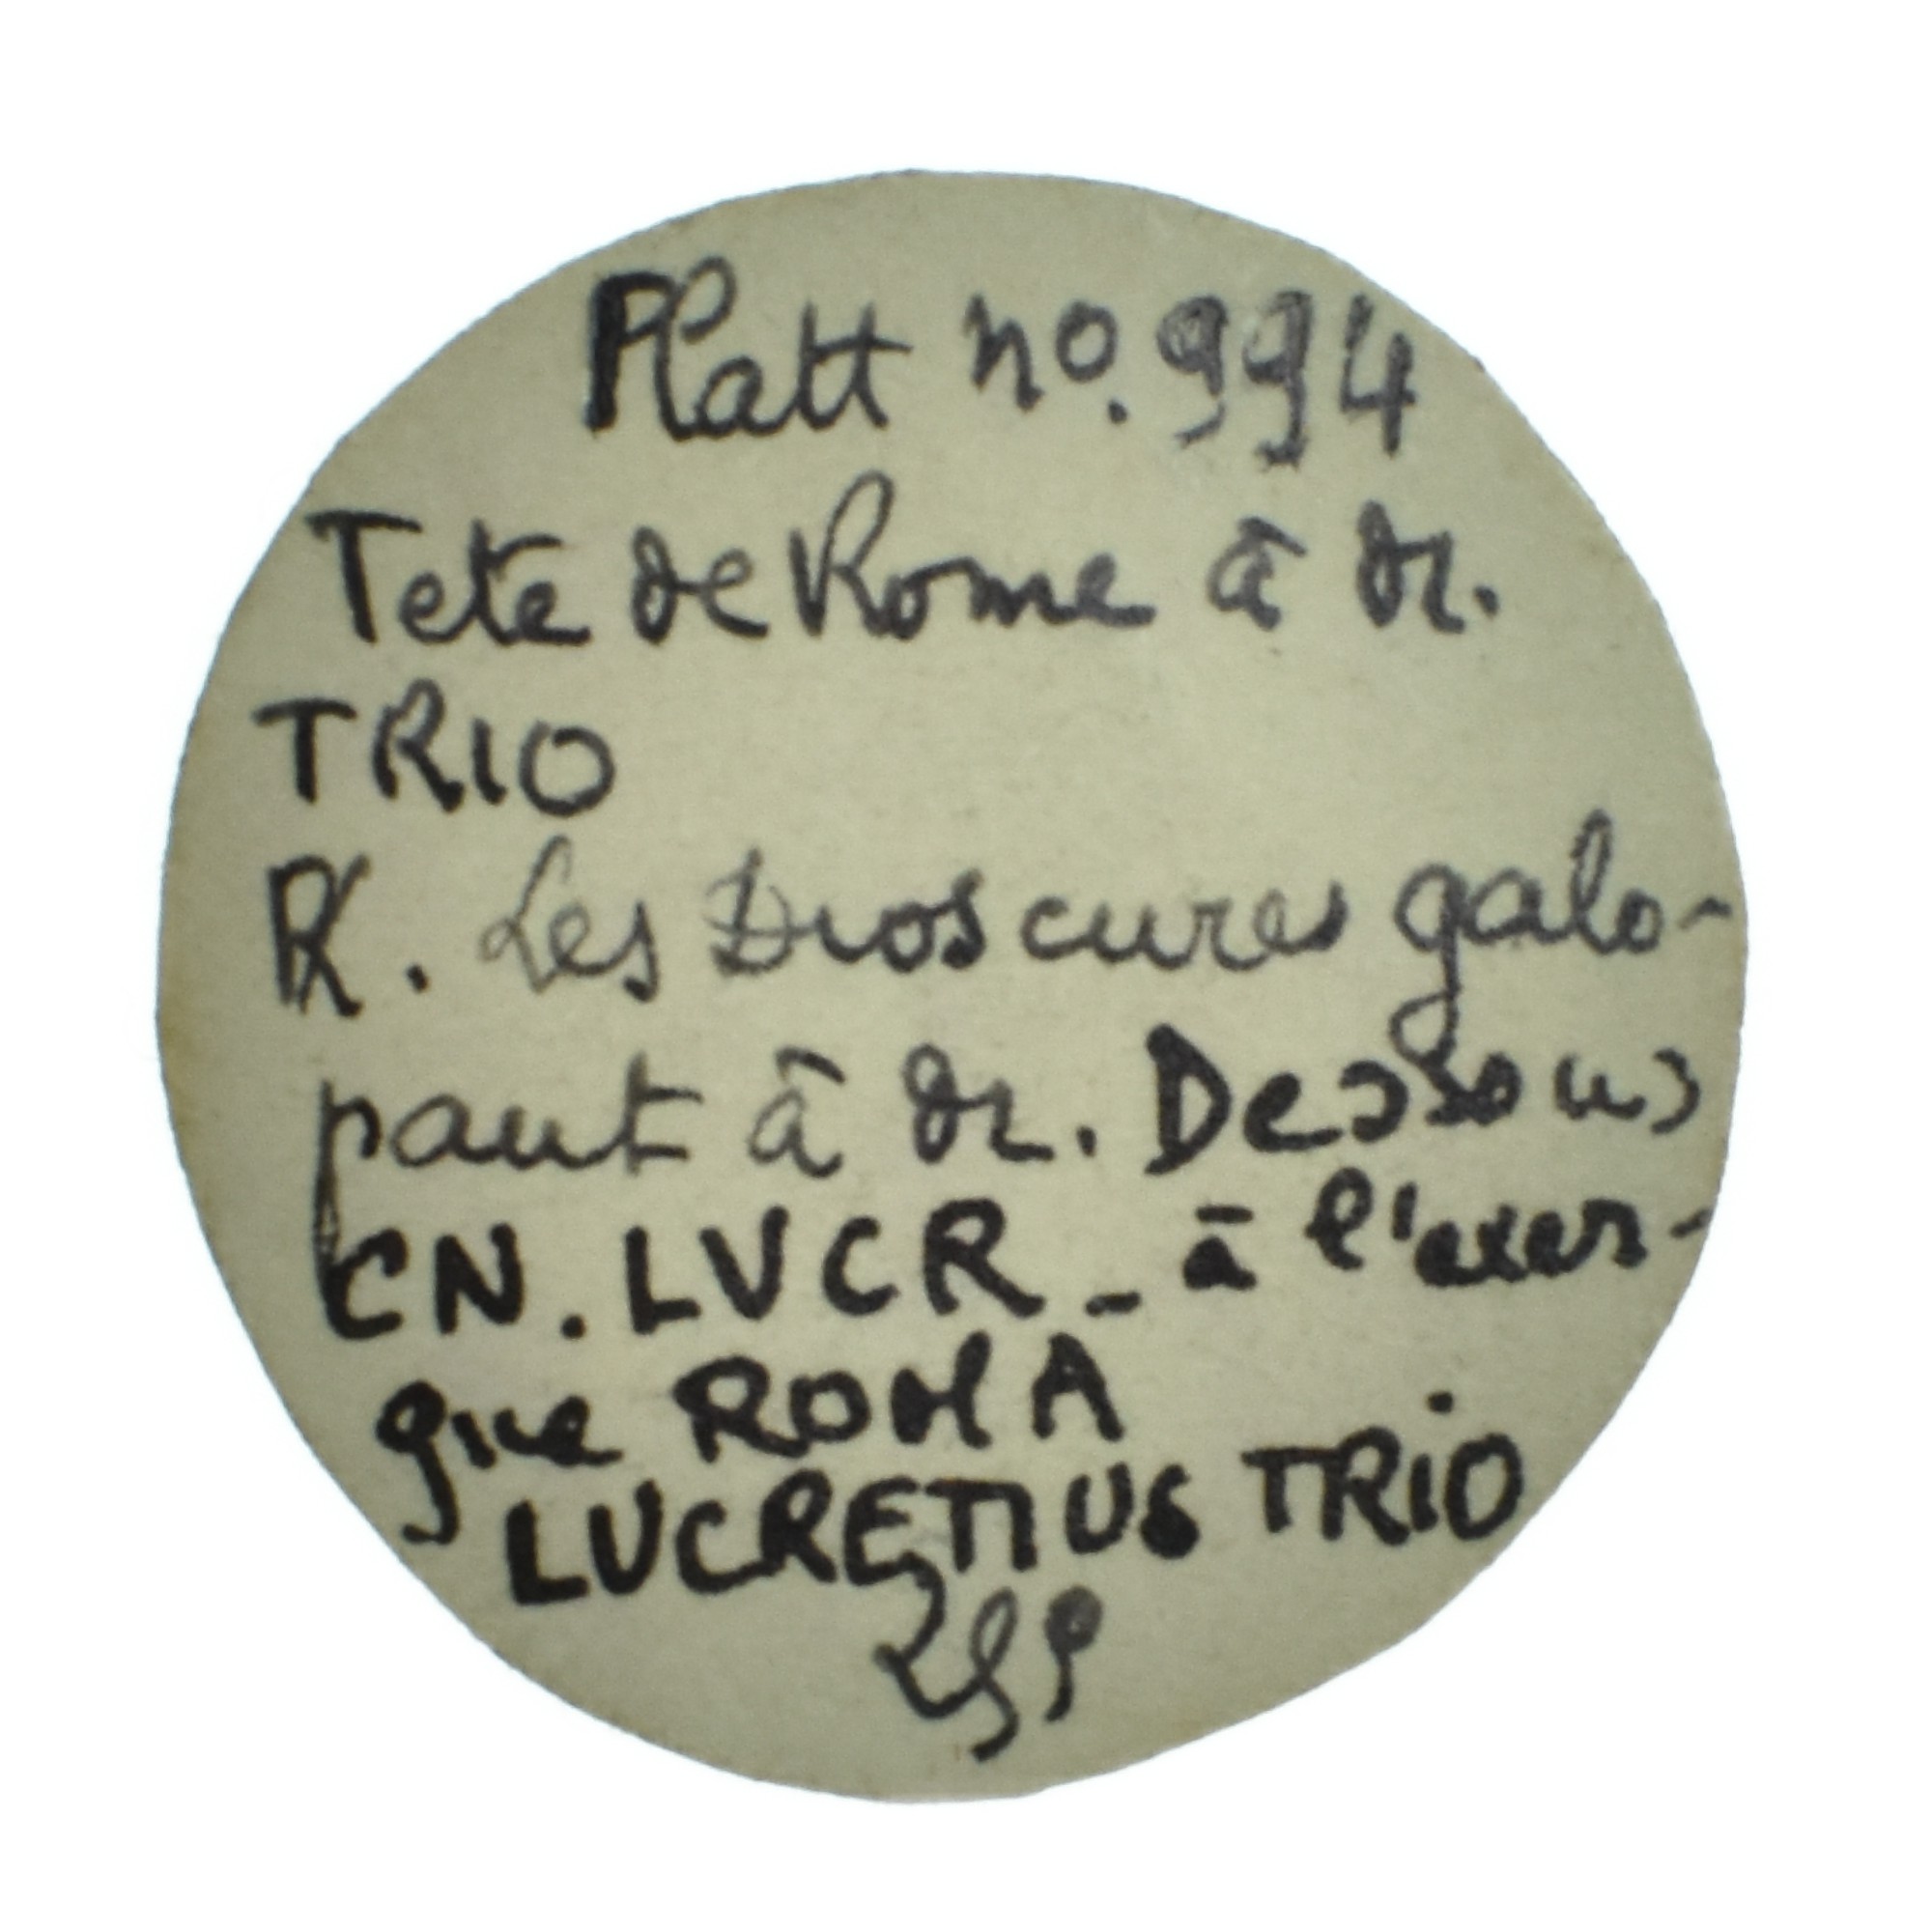 Platt no. 994
Tete de Rome à dr.
TRIO
R/. Les Dioscures galo-
pant à dr. Dessous
CN. LVCR _ à l'exer-
gue ROMA
LUCRETIUS TRIO